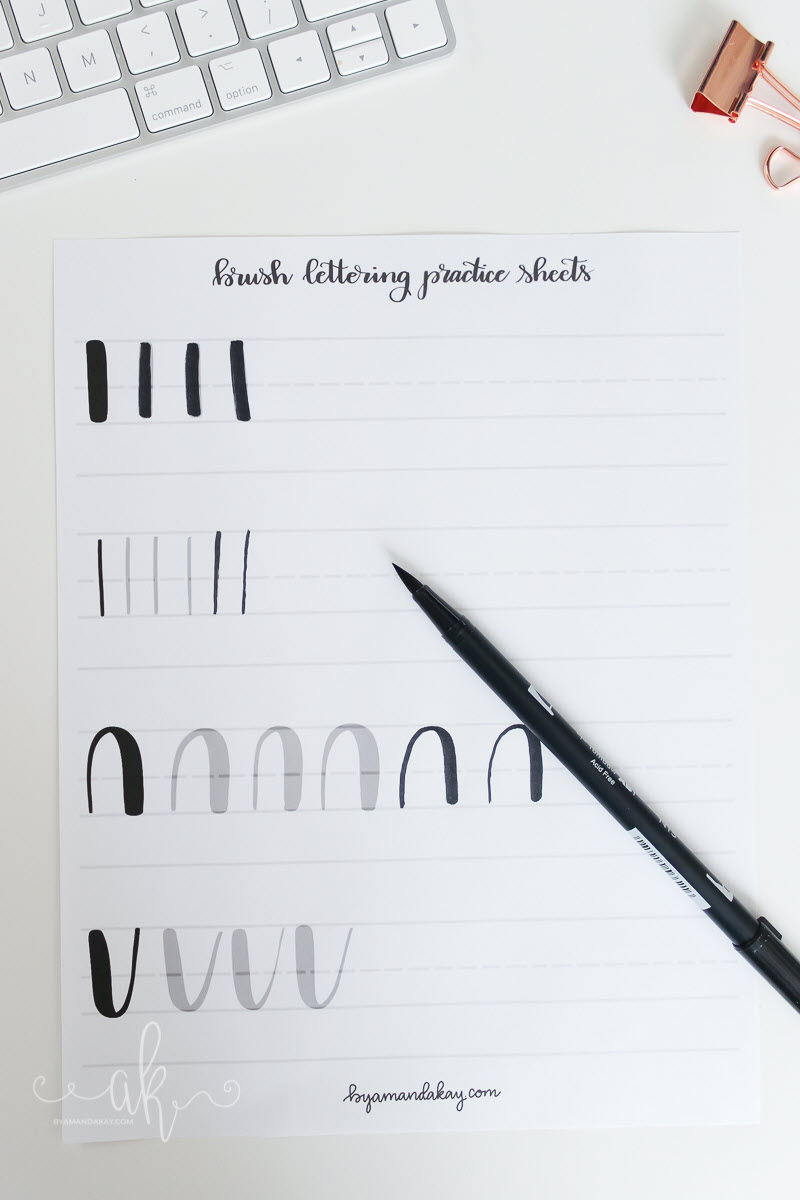 J
N
M
< ,
> .
? /
⌘
command
⌥
option
brush lettering practice sheets
Acid Free
byamandakay.com
ak
BYAMANDAKAY.COM